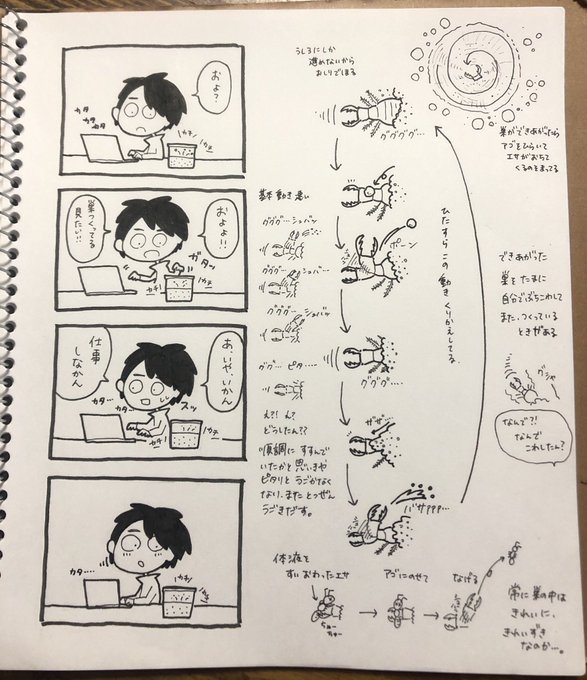 およ?
カタ
カタ
カタ
カチッ
カチ
およよ!!
巣つくってる
見たい!!
ガタッ
カチ!
カチ
あ、いや、いかん
仕事
しなかん
スッ
カタ…
カタ!
カチ
カタ…
カチ!
うしろにしか
進めないから
おしりでほる
ググググ…
基本動き速い
グググ…シュバッ
グググ…シュバ…
グググ…シュバッ
ポーン
ググ…ピタ…
え?!ん?
どうしたん??
順調にすすんで
いたかと思いきや
ピタリとうごかなく
なり、またとつぜん
うごきだす。
グググ…
ガサ
バサァァァ…
ひたすらこの動きくりかえしてる
巣ができあがったら
アゴをひらいて
エサがおちて
くるのをまってる
できあがった
巣をたまに
自分でぶちこわして
また、つくっている
ときがある
グシャ
なんで?!
なんで
こわしたん?
体液を
すいおわったエサ
ちゅー
ちゅー
アゴにのせて
なげる
常に巣の中は
きれいに、
きれいずき
なのか…。